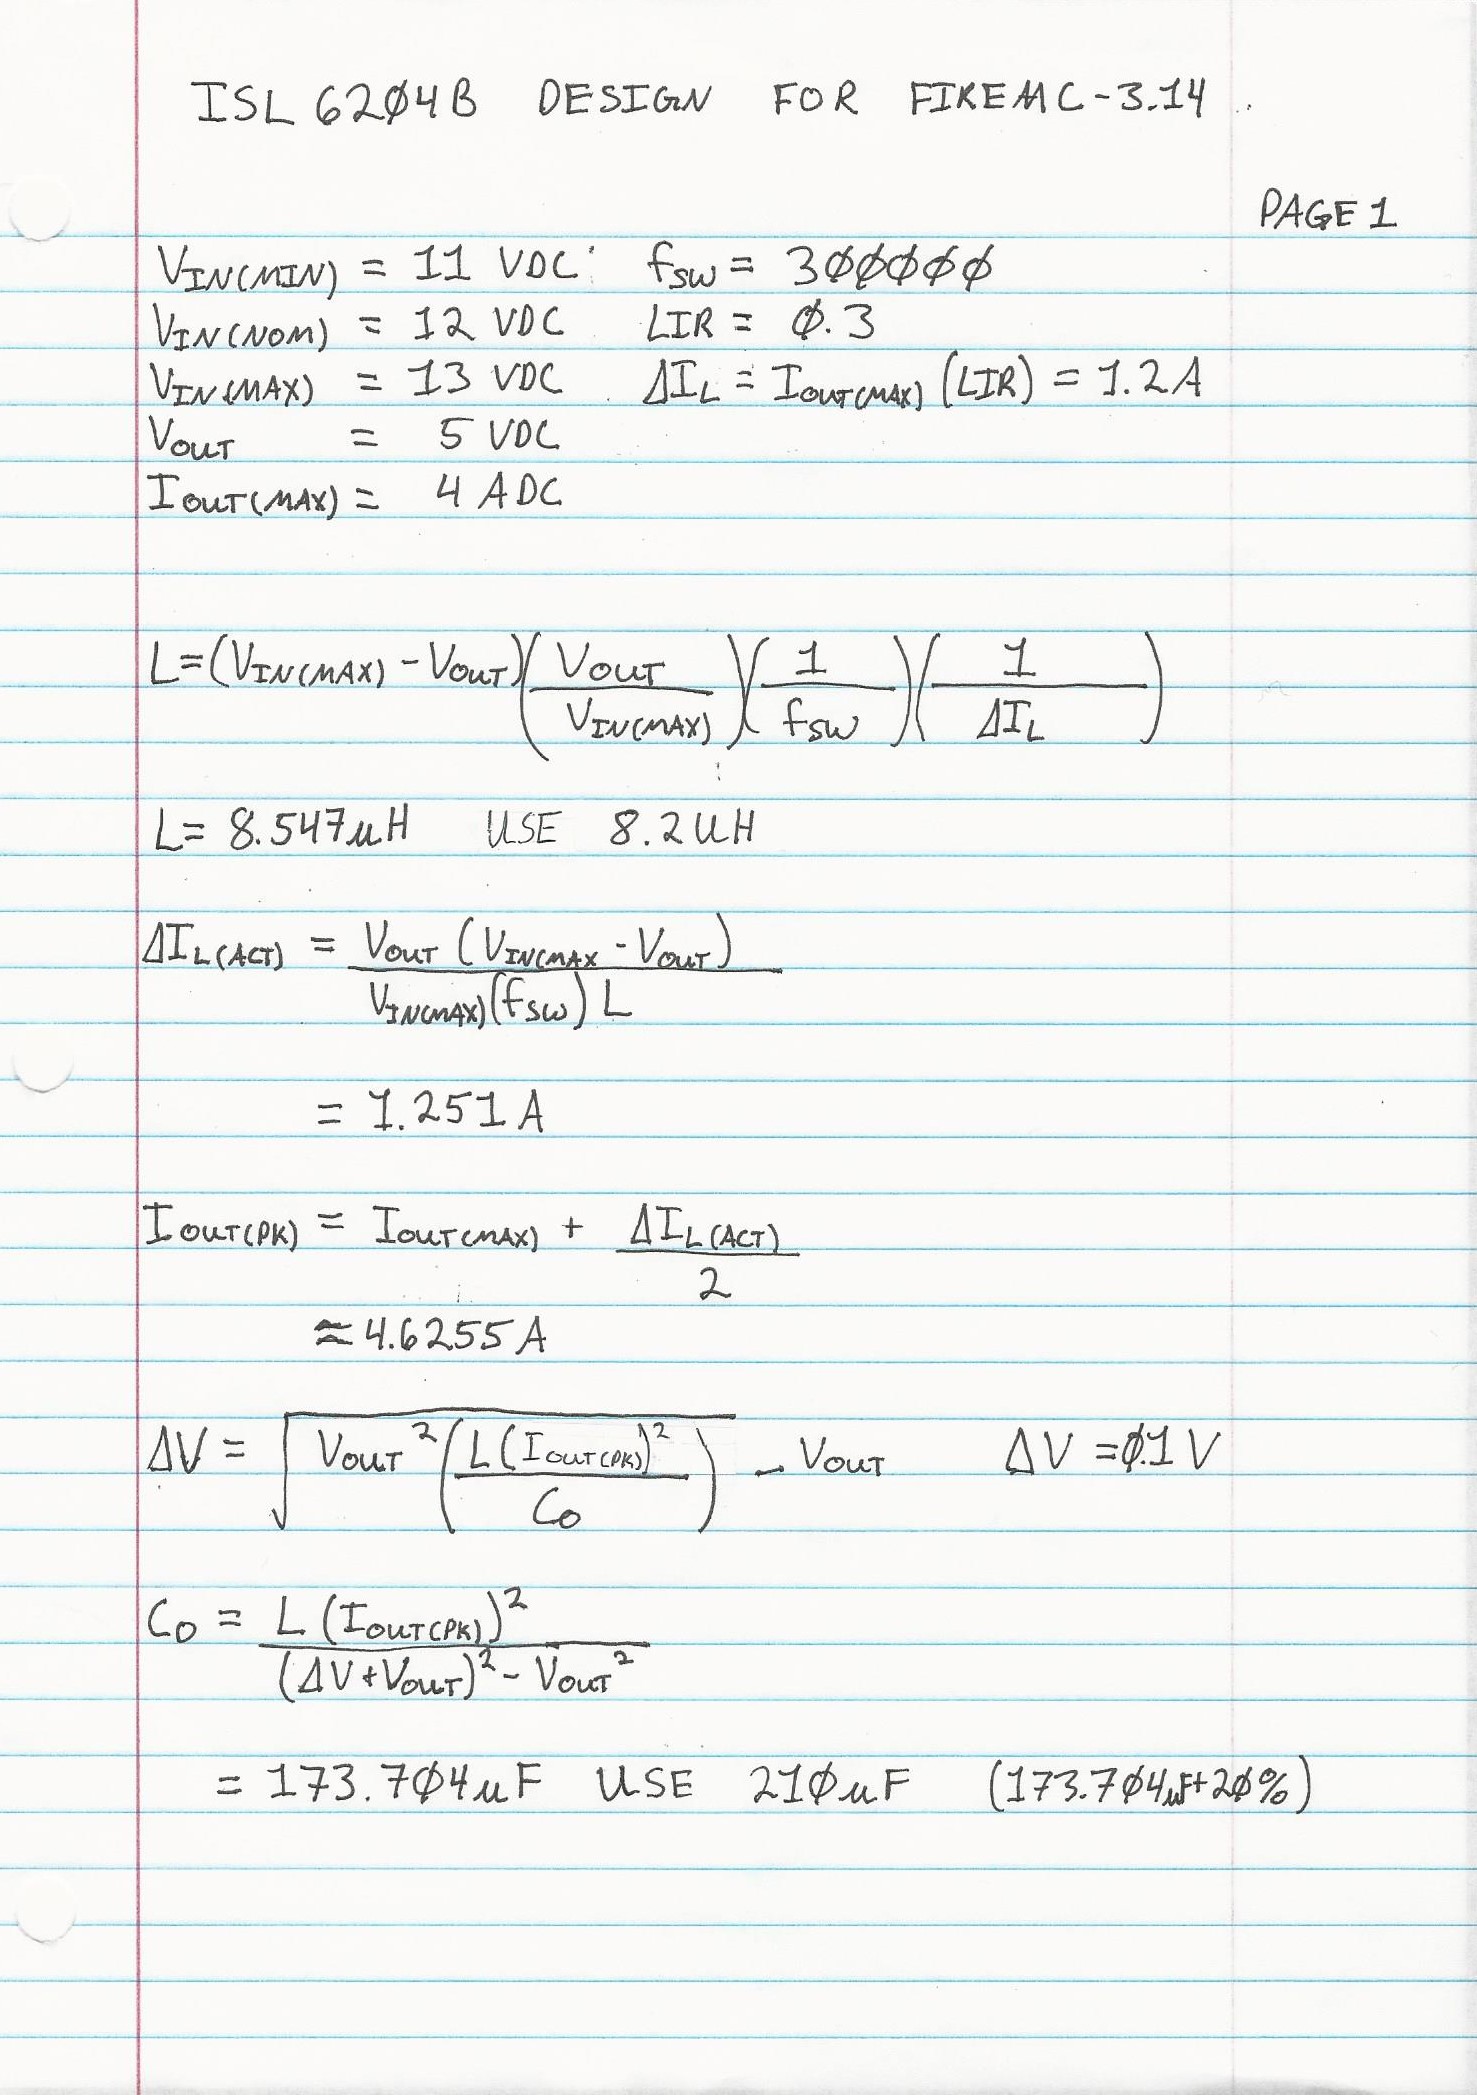 ISL 62Ø4B DESIGN FOR FIREMC-3.14
PAGE 1
VIN(MIN) = 11 VDC fsw = 3ØØØØØ
VIN(NOM) = 12 VDC LIR = Ø.3
VIN(MAX) = 13 VDC ΔIL = IOUT(MAX) (LIR) = 1.2A
VOUT = 5 VDC
IOUT(MAX) = 4 ADC
L=(VIN(MAX) - VOUT)(VOUT/VIN(MAX))(1/fsw)(1/ΔIL)
L= 8.547uH USE 8.2UH
ΔIL(ACT) = VOUT (VIN(MAX - VOUT)
VIN(MAX)(fsw) L
= 1.251A
IOUT(PK) = IOUT(MAX) + ΔIL(ACT)
2
≈4.6255A
ΔV = √VOUT²(L(IOUT(PK))²/CO) - VOUT ΔV =Ø.1V
CO = L (IOUT(PK))²
(ΔV+VOUT)² - VOUT²
= 173.7Ø4uF USE 21ØuF (173.7Ø4uF+2Ø%)